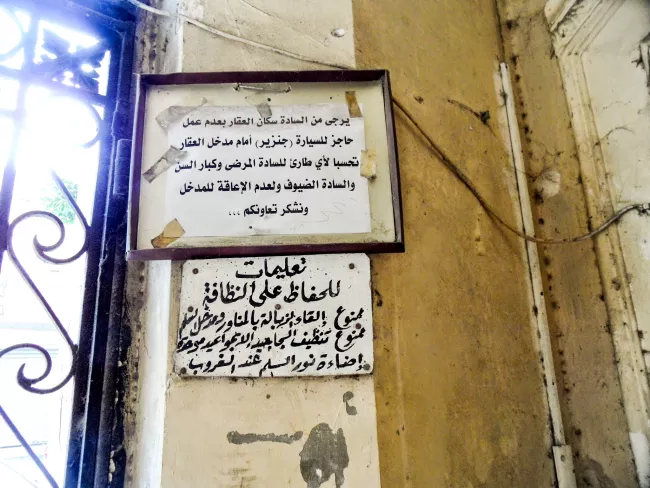 يرجى من السادة سكان العقار بعدم عمل
حاجز للسيارة (جنزير) أمام مدخل العقار
تحسبا لأي طارئ للسادة المرضى وكبار السن
والسادة الضيوف ولعدم الإعاقة للمدخل
ونشكر تعاونكم ...
تعليمات
للحفاظ على النظافة
ممنوع إلقاء الزبالة بالمناور ومدخل السلم
ممنوع تنظيف السجاجيد إلا بمواعيد موحدة
إضاءة نور السلم عند الغروب